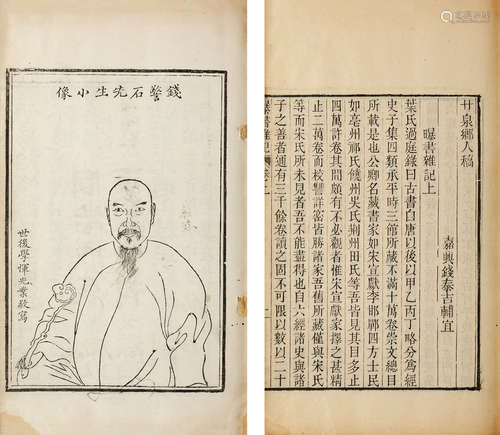 錢警石先生小像
世後學惲兆業敬寫
甘泉鄉人稿
嘉興錢泰吉輔宜
曝書雜記上
葉氏過庭錄曰古書自唐以後以甲乙丙丁略分爲經
史子集四類承平時三館所藏不滿十萬卷崇文總目
所載是也公卿名藏書家如宋宣獻李邯鄲四方士民
如亳州祁氏饒州吳氏荆州田氏等吾皆見其目多止
四萬許卷其間頗有不必觀者惟宋宣獻家擇之甚精
止二萬卷而校讐詳密皆勝諸家吾舊所藏僅與宋氏
等而宋氏所未見者吾不能盡得也自六經諸史與諸
子之善者通有三千餘卷讀之固不可限以數以二十